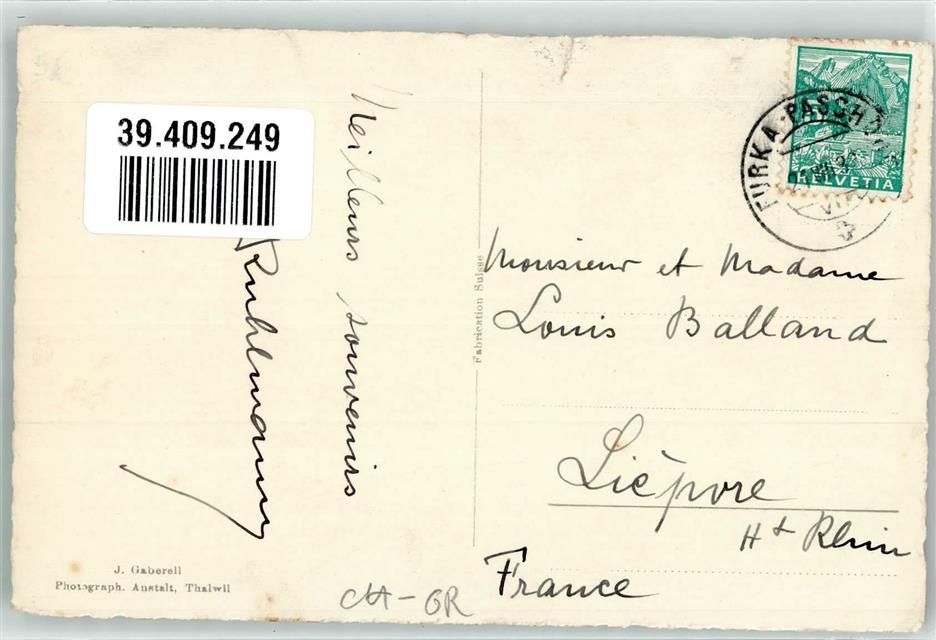 39.409.249
Meilleurs souvenirs
Ruhlmann
Fabrication Suisse
J. Gaberell
Photograph. Anstalt, Thalwil
CH-GR
HELVETIA
FURKA-PASSHÖHE
Monsieur et Madame
Louis Balland
Lièpvre
Ht Rhin
France